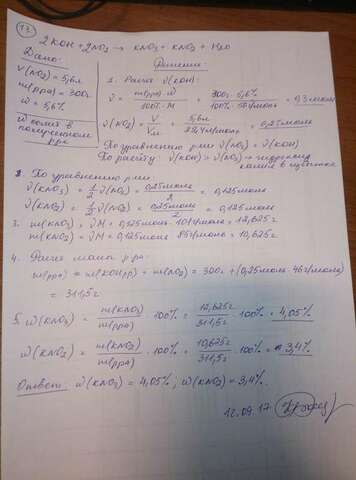 13
2KOH + 2NO₂ → KNO₃ + KNO₂ + H₂O
Дано:
V(NO₂) = 5,6л
m(ppa) = 300г
ω = 5,6%
ω солей в
полученном
р-ре
Решение:
1. Расчет ν(KOH):
ν = m(ppa)·ω / 100%·M = 300г·5,6% / 100%·56г/моль = 0,3моль
ν(NO₂) = V / Vm = 5,6л / 22,4л/моль = 0,25моль
По уравнению р-ии ν(NO₂) = ν(KOH)
По расчету ν(KOH) > ν(NO₂) ⇒
в щелочи
2. По уравнению р-ии
ν(KNO₃) = 1/2 ν(NO₂) = 0,25моль / 2 = 0,125моль
ν(KNO₂) = 1/2 ν(NO₂) = 0,25моль / 2 = 0,125моль
3. m(KNO₃) = νM = 0,125моль · 101г/моль = 12,625г
m(KNO₂) = νM = 0,125моль · 85г/моль = 10,625г
4. Расчет массы р-ра:
m(ppa) = m(KOH ppa) + m(NO₂) = 300г + (0,25моль · 46г/моль)
= 311,5г
5. ω(KNO₃) = m(KNO₃) / m(ppa) · 100% = 12,625г / 311,5г · 100% = 4,05%
ω(KNO₂) = m(KNO₂) / m(ppa) · 100% = 10,625г / 311,5г · 100% = 3,4%
Ответ: ω(KNO₃) = 4,05%; ω(KNO₂) = 3,4%.
12.09.17